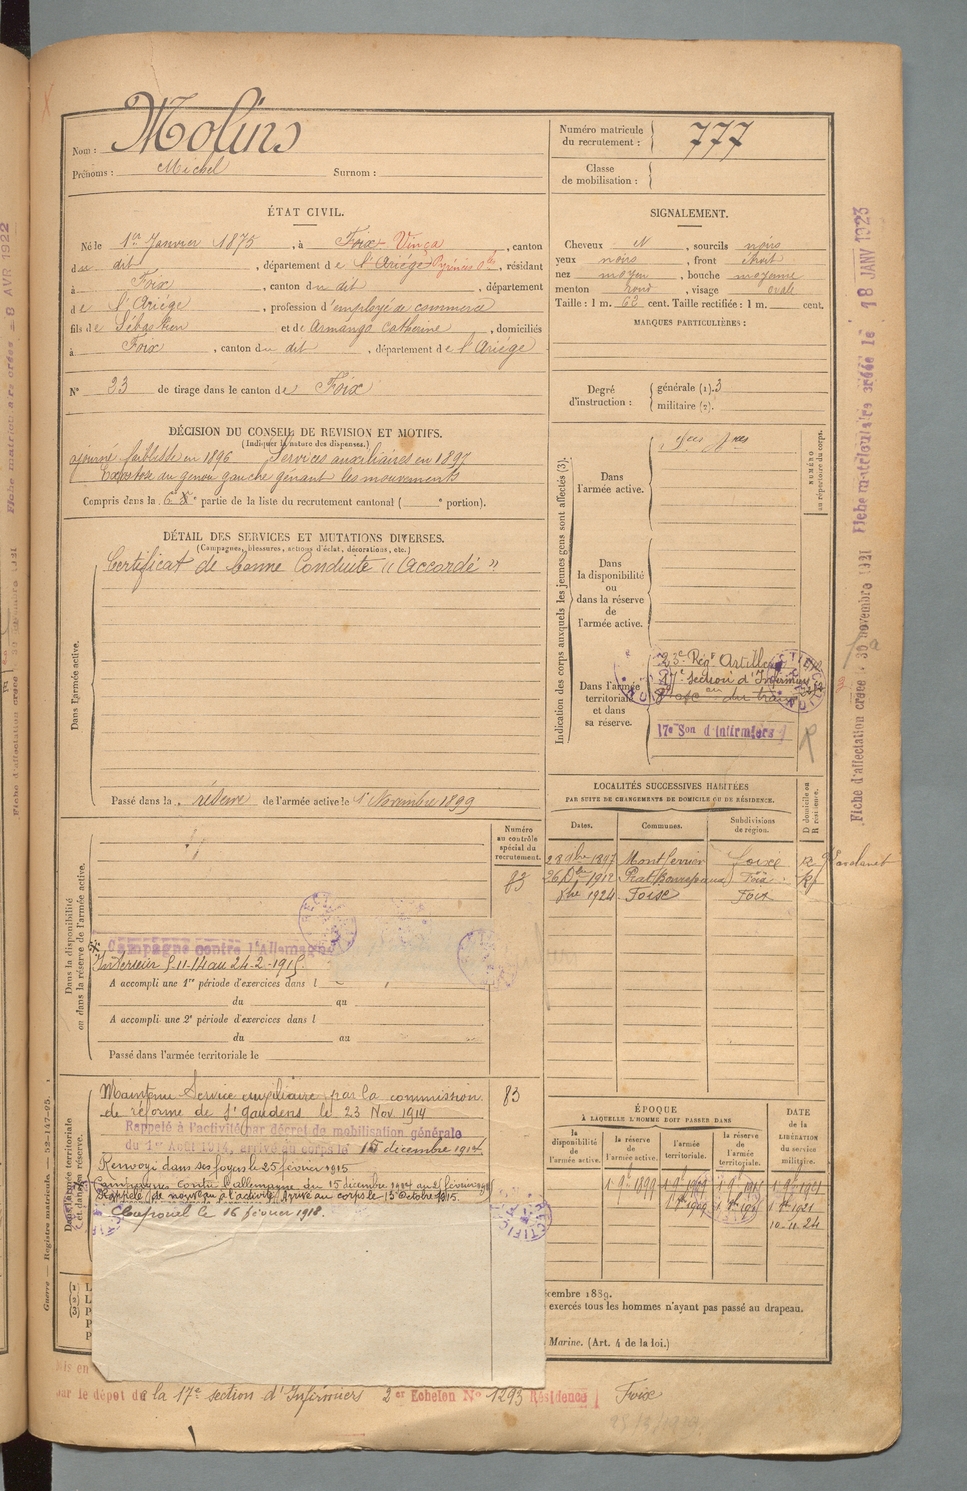 Molins
Nom :
Prénoms : Michel Surnom :
Numéro matricule du recrutement : 777
Classe de mobilisation :
ÉTAT CIVIL.
Né le 1er Janvier 1875, à Foix Vinça, canton
du dit, département de l'Ariège Pyrénées Oles, résidant
à Foix, canton du dit, département
de l'Ariège, profession d'employé de commerce
fils de Sébastien et de Armango Catherine, domiciliés
à Foix, canton du dit, département de l'Ariège
N° 23 de tirage dans le canton de Foix
SIGNALEMENT.
Cheveux N, sourcils noirs
yeux noirs, front étroit
nez moyen, bouche moyenne
menton rond, visage ovale
Taille : 1 m. 62 cent. Taille rectifiée : 1 m. cent.
MARQUES PARTICULIÈRES :
Degré d'instruction : générale (1). 3
militaire (2).
DÉCISION DU CONSEIL DE REVISION ET MOTIFS.
(Indiquer la nature des dispenses.)
ajourné faiblesse en 1896 Services auxiliaires en 1897
Exostose au genou gauche gênant les mouvements
Compris dans la 6e partie de la liste du recrutement cantonal ( e portion).
DÉTAIL DES SERVICES ET MUTATIONS DIVERSES.
(Campagnes, blessures, actions d'éclat, décorations, etc.)
Dans l'armée active.
Certificat de bonne Conduite "Accordé"
Passé dans la réserve de l'armée active le 1er Novembre 1899
Indication des corps auxquels les jeunes gens sont affectés (3).
NUMÉRO au répertoire du corps.
Dans l'armée active.
Dans la disponibilité ou dans la réserve de l'armée active.
Dans l'armée territoriale et dans sa réserve.
23e Régt Artillerie
17e section d'Infirmiers
17e Son d'Infirmiers
LOCALITÉS SUCCESSIVES HABITÉES
PAR SUITE DE CHANGEMENTS DE DOMICILE OU DE RÉSIDENCE.
Dates. Communes. Subdivisions de région. D domicile ou R résidence.
28 9bre 1897 Montferrier Foix R
26 Dbre 1912 Prat Bonrepaux Foix R
1924 Foix Foix
Dans la disponibilité ou dans la réserve de l'armée active.
Numéro au contrôle spécial du recrutement.
83
Campagne contre l'Allemagne
Intérieur 5-11-14 au 24-2-1915.
A accompli une 1re période d'exercices dans l
du au
A accompli une 2e période d'exercices dans l
du au
Passé dans l'armée territoriale le
Dans l'armée territoriale et dans sa réserve.
Maintenu Service auxiliaire par la commission 83
de réforme de St Gaudens le 23 Nov 1914
Rappelé à l'activité par décret de mobilisation générale
du 1er Août 1914, arrivé au corps le 15 décembre 1914.
Renvoyé dans ses foyers le 25 février 1915
Campagne contre l'allemagne du 15 décembre 1914 au
Rappelé de nouveau à l'activité Arrivé au corps le 15 Octobre 1915.
le 16 février 1918.
ÉPOQUE
À LAQUELLE L'HOMME DOIT PASSER DANS
la disponibilité de l'armée active. la réserve de l'armée active. l'armée territoriale. la réserve de l'armée territoriale.
DATE de la LIBÉRATION du service militaire.
1 9bre 1899
10-11-24
écembre 1889.
exercés tous les hommes n'ayant pas passé au drapeau.
Marine. (Art. 4 de la loi.)
Guerre — Registre matricule. — 52-147-95.
le dépôt de la 17e section d'Infirmiers 2er Echelon N° 1293 Résidence Foix
Fiche d'affectation créée 30 novembre 1921 Fiche matriculaire créée le 18 JANV 1923